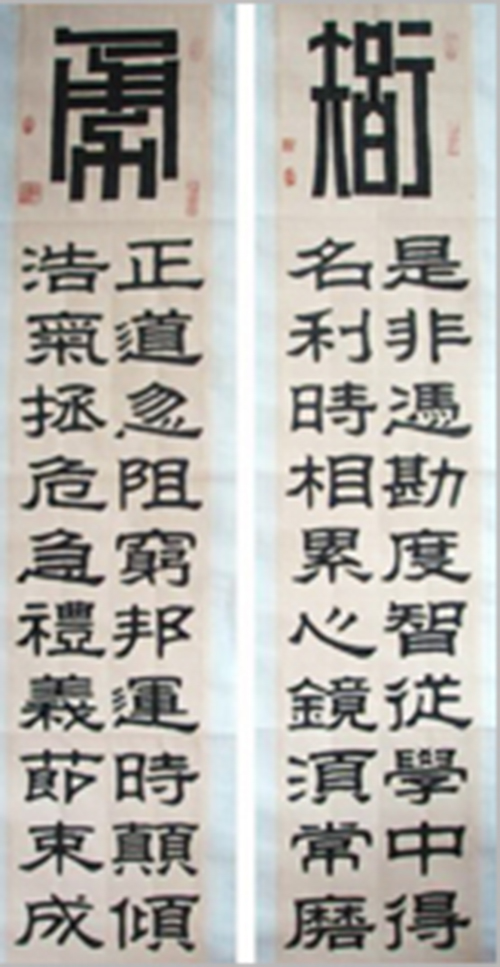 是非憑勘度智從學中得
名利時相累心鏡須常磨
正道忽阻窮邦運時顛傾
浩氣拯危急禮義莭束成